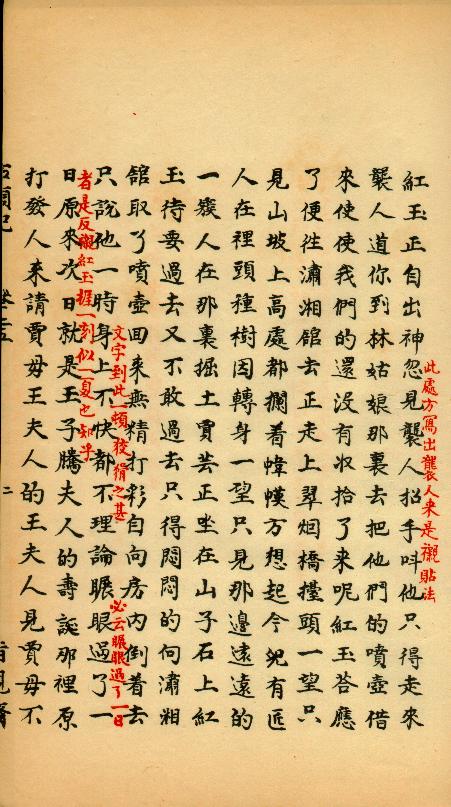 紅玉正自出神忽見襲人招手呌他只得走來
此處方寫出襲人來是襯貼法
襲人道你到林姑娘那裏去把他們的噴壺借
來使使我們的還没有收拾了來呢紅玉荅應
了便徃瀟湘舘去正走上翠烟橋擡頭一望只
見山坡上高處都攔着幃幙方想起今兒有匠
人在裡頭種樹因轉身一望只見那邉遠遠的
一簇人在那裏掘土賈芸正坐在山子石上紅
玉待要過去又不敢過去只得悶悶的向瀟湘
舘取了噴壺回來無精打彩自向房内倒着去
文字到此一頓狡猾之甚
必云眼眼過了一日
只說他一時身上不快都不理論眼眼過了一
者是反襯紅玉捱一刻似一夏也知乎
日原來次日就是王子騰夫人的壽誕那裡原
打發人來請賈母王夫人的王夫人見賈母不
二